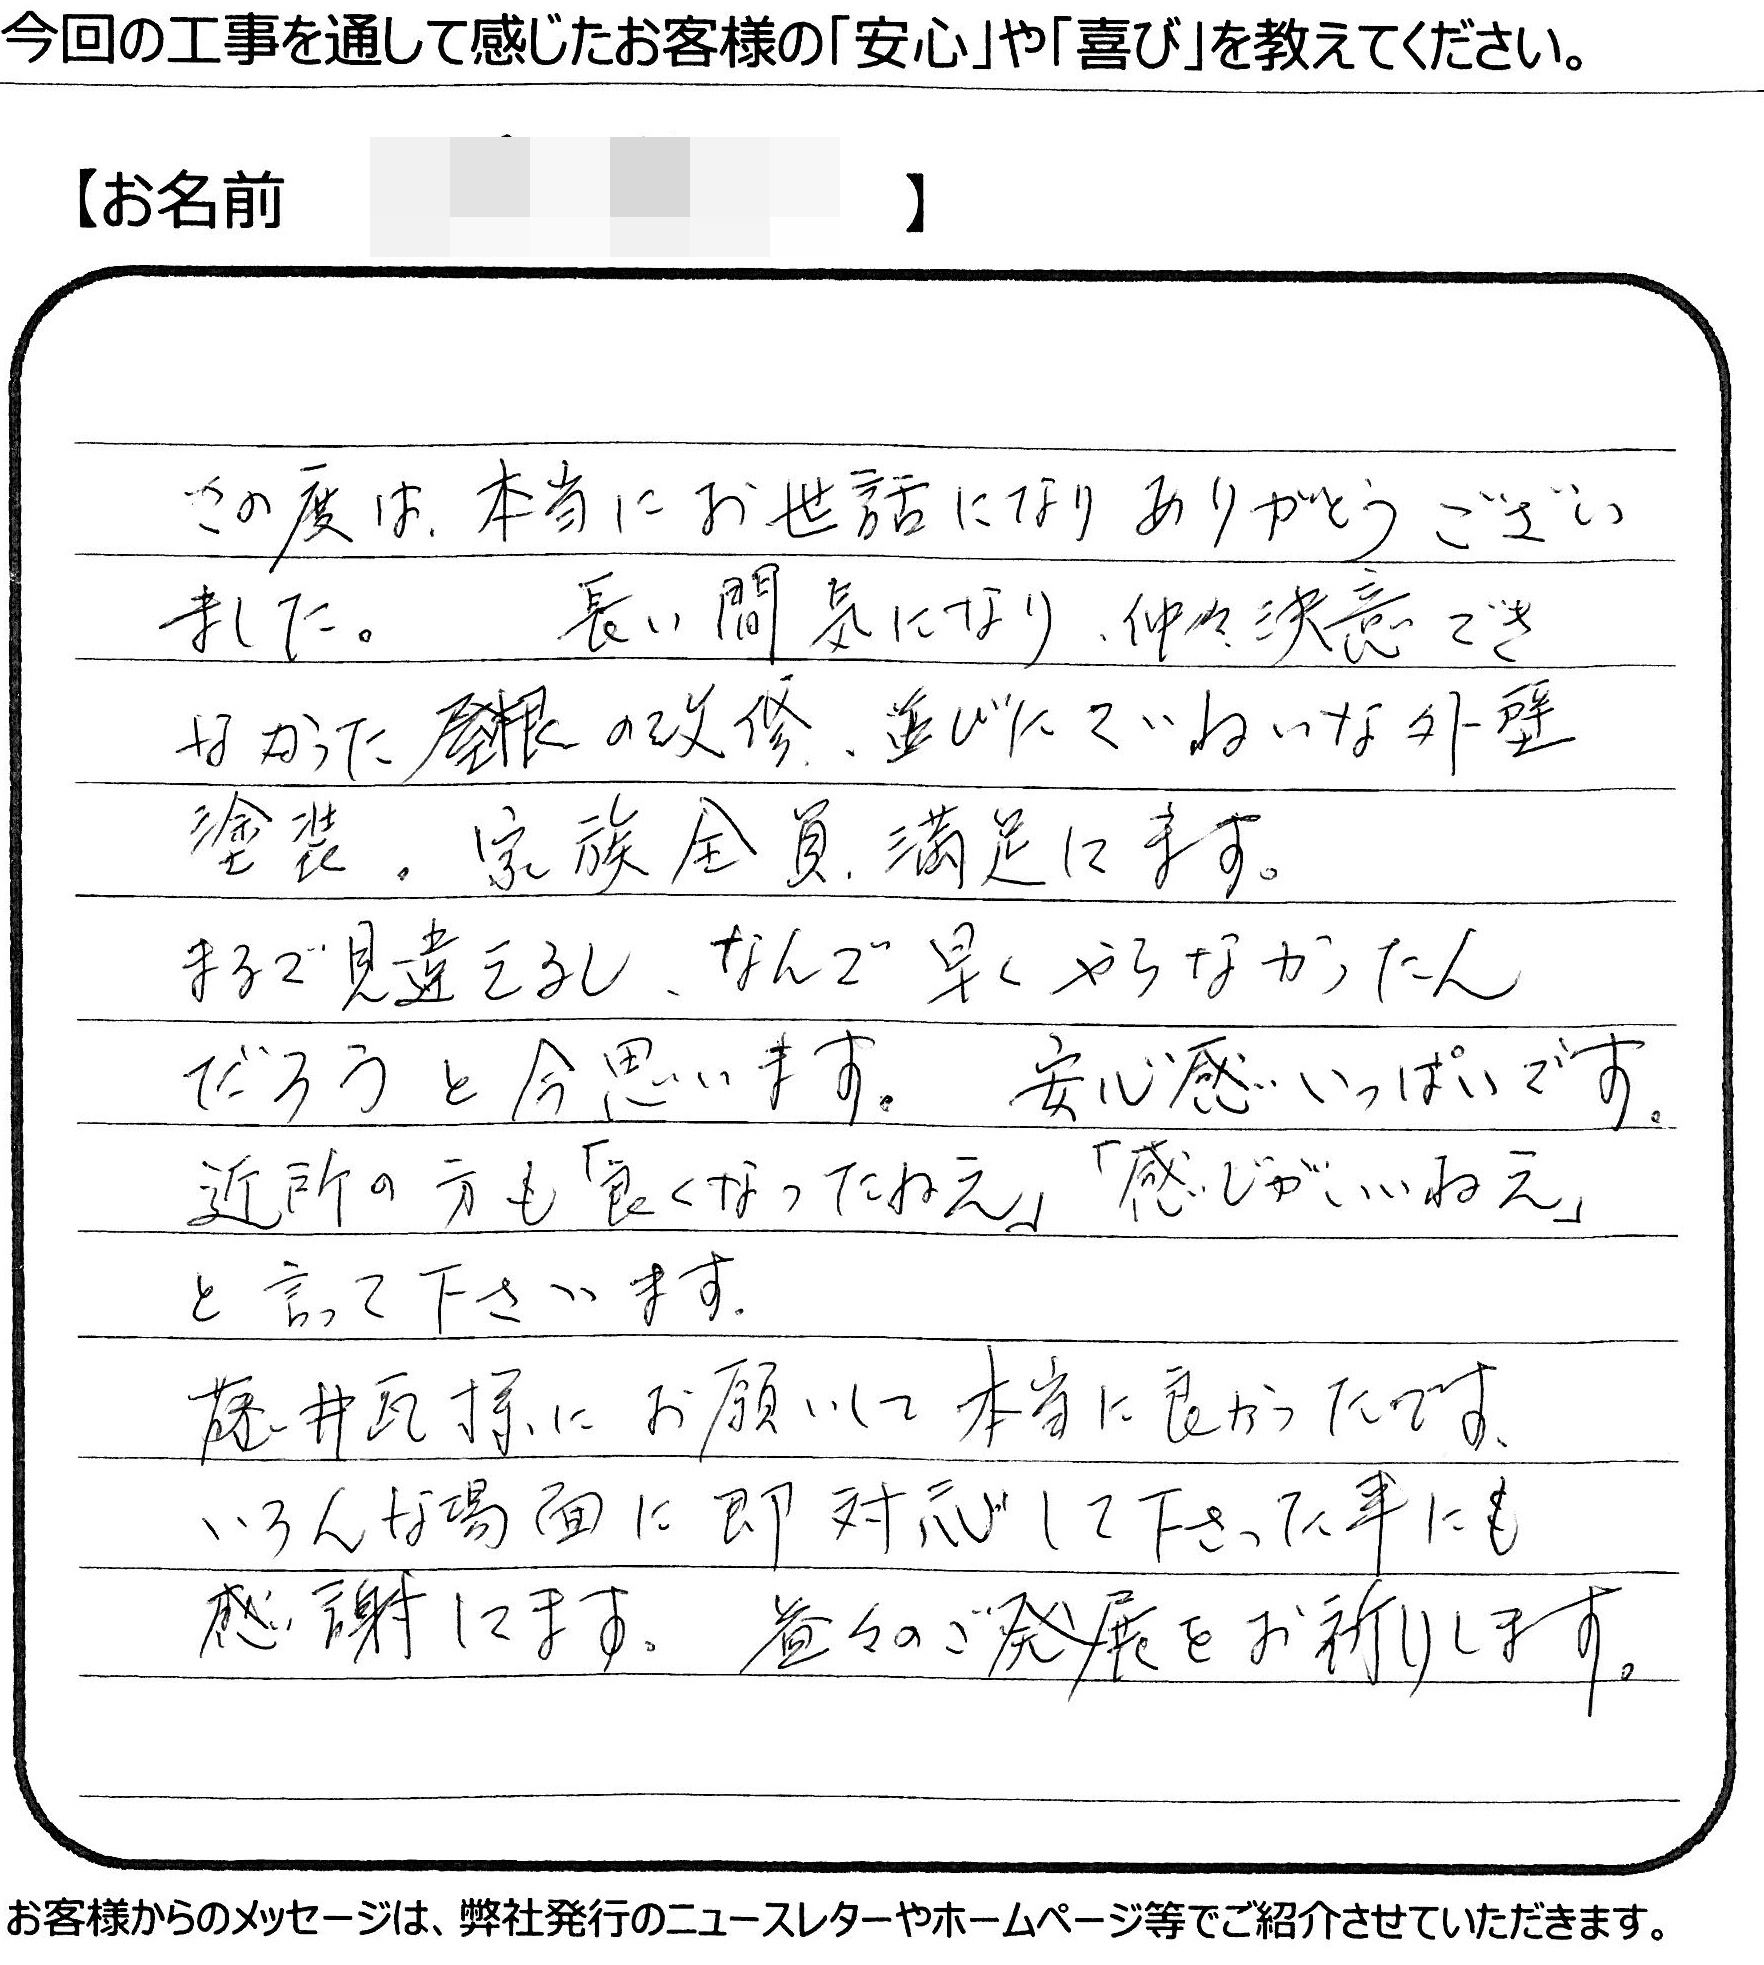 今回の工事を通して感じたお客様の「安心」や「喜び」を教えてください。
【お名前 】
この度は、本当にお世話になりありがとうござい
ました。 長い間気になり、仲々決意でき
なかった屋根の改修、並びにていねいな外壁
塗装。家族全員、満足してます。
まるで見違えるし、なんで早くやらなかったん
だろうと今思います。 安心感いっぱいです。
近所の方も「良くなったねえ」「感じがいいねえ」
と言って下さいます。
藤井瓦様にお願いして本当に良かったです。
いろんな場面に即対応して下さった事にも
感謝してます。 益々のご発展をお祈りします。
お客様からのメッセージは、弊社発行のニュースレターやホームページ等でご紹介させていただきます。